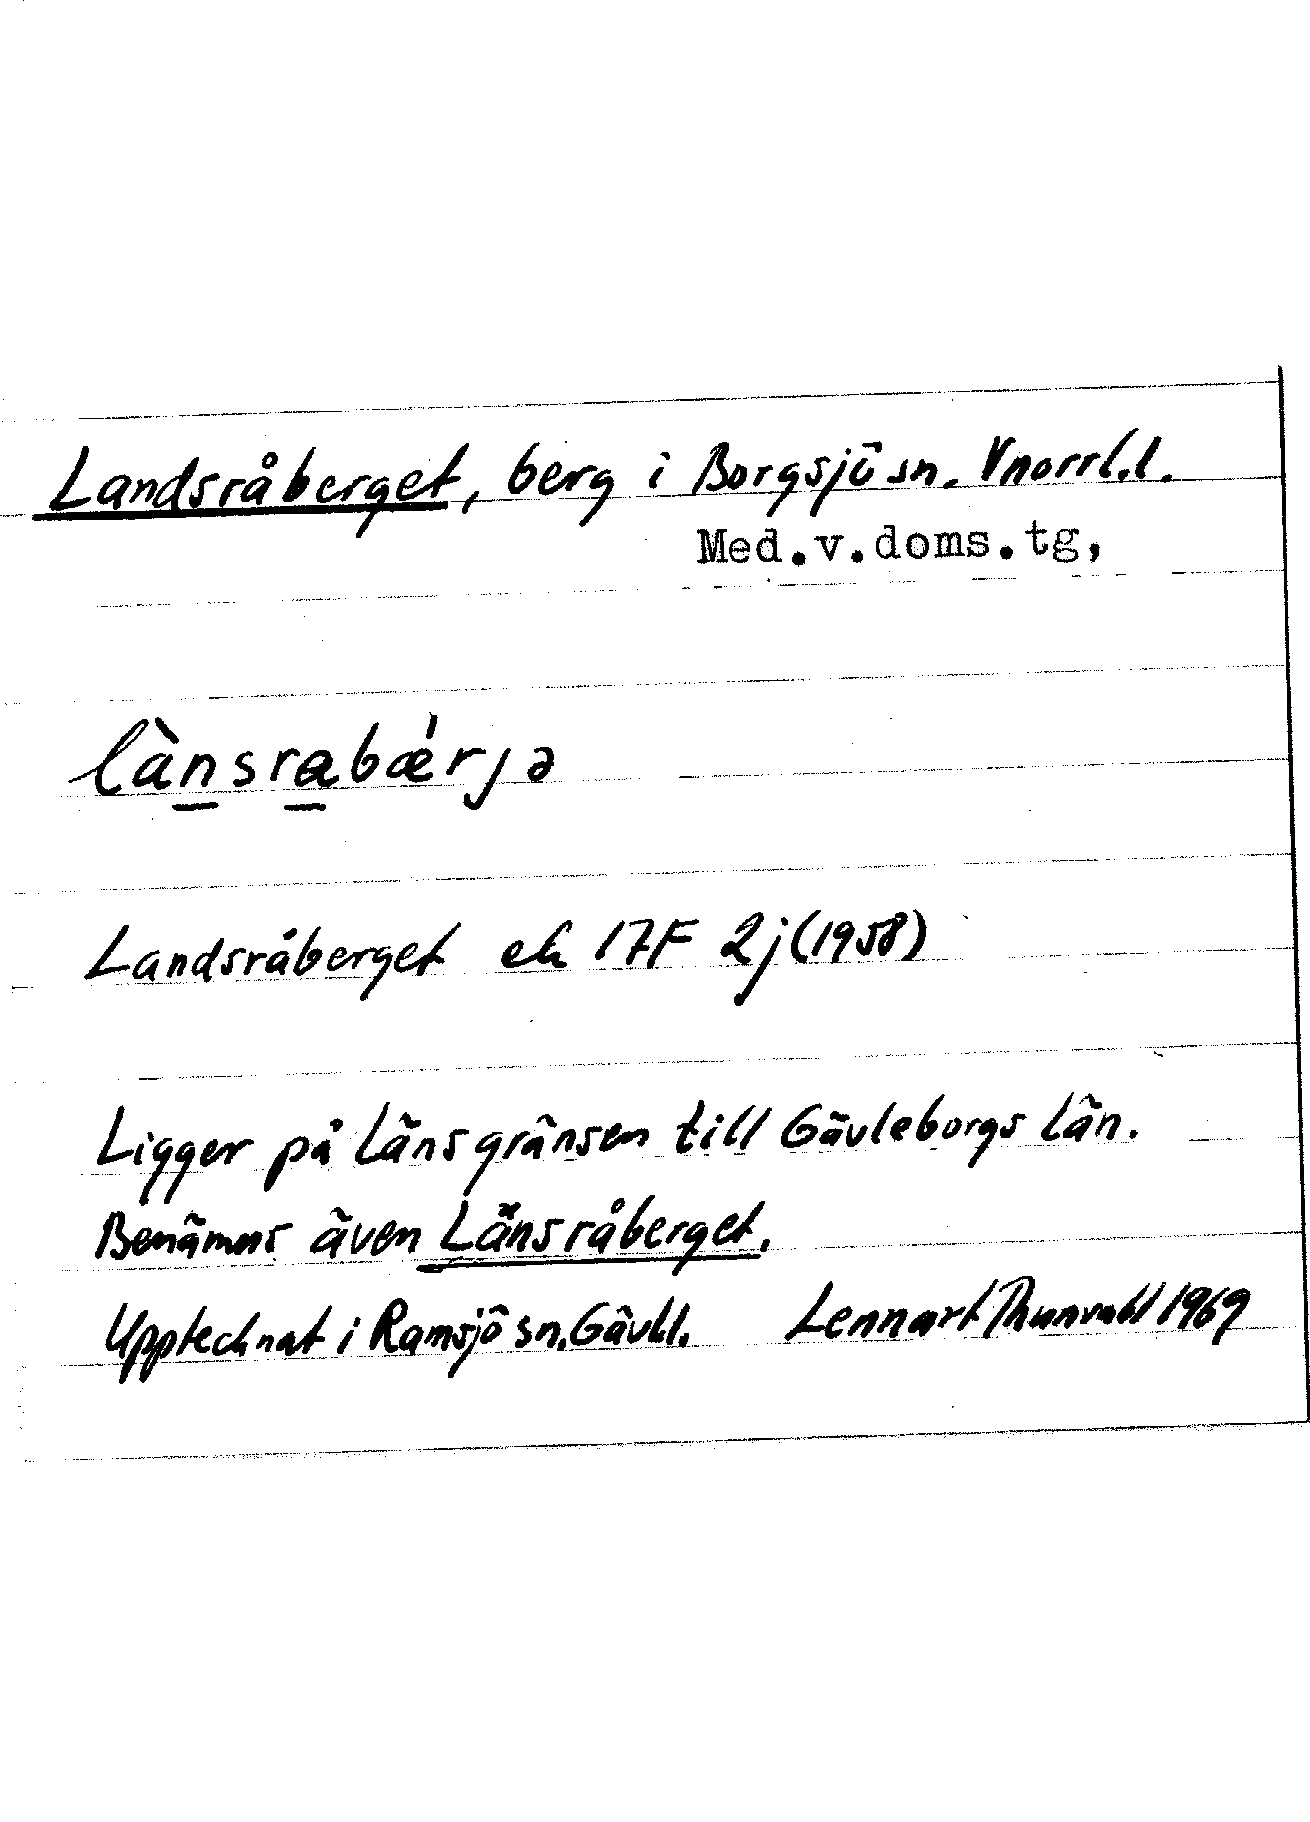 Landsråberget, berg i Borgsjö sn. Vnorrl.l.
Med.v.doms.tg,
lànsrabǽrjə
Landsråberget ek 17F 2j (1958)
Ligger på länsgränsen till Gävleborgs län.
Benämns även Länsråberget.
Upptecknat i Ramsjö sn. Gävl.l. Lennart Thunvall 1969